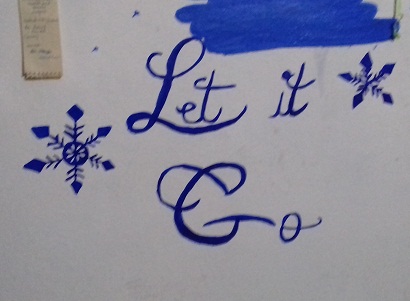 Let it
Go